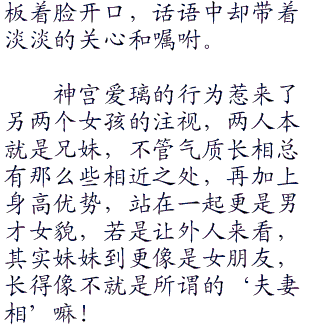 板着脸开口，话语中却带着
淡淡的关心和嘱咐。
神宫爱璃的行为惹来了
另两个女孩的注视，两人本
就是兄妹，不管气质长相总
有那么些相近之处，再加上
身高优势，站在一起更是男
才女貌，若是让外人来看，
其实妹妹到更像是女朋友，
长得像不就是所谓的‘夫妻
相’嘛！